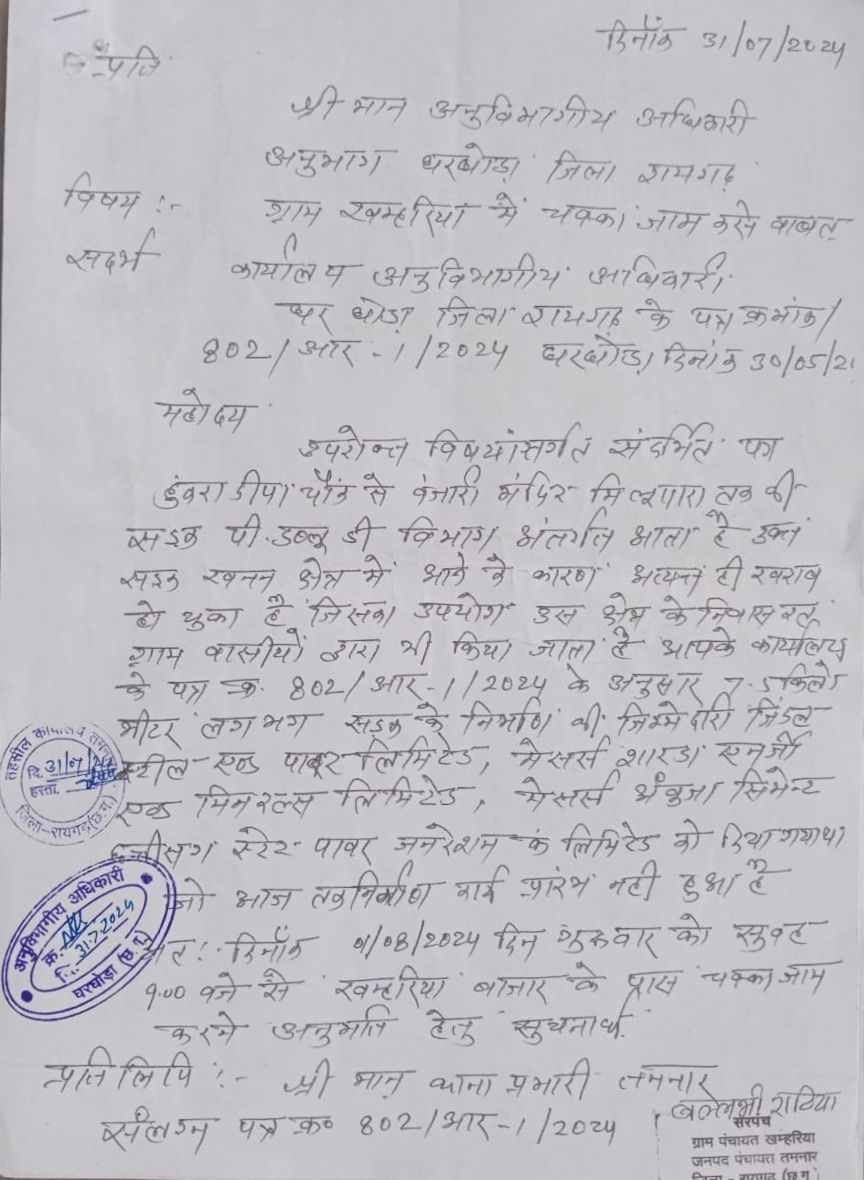 दिनाँक 31/07/2024
प्रति
श्री मान अनुविभागीय अधिकारी
अनुभाग घरघोड़ा जिला रायगढ़
विषय :- ग्राम खम्हरिया में चक्का जाम करने बाबत्
सदर्भ कार्यालय अनुविभागीय अधिकारी
घर घोड़ा जिला रायगढ़ के पत्र क्रमांक/
802/आर-1/2024 घरघोड़ा दिनांक 30/05/2
महोदय
उपरोक्त विषयांतर्गत संदर्भित पत्र
डुंगरा डीपा चौंक से बंजारी मंदिर मिलूपारा तक की
सड़क पी.डब्लू डी विभाग अंतर्गत आता है उक्त
सड़क खनन क्षेत्र में आने के कारण अत्यन्त ही खराब
हो चुका है जिसका उपयोग उस क्षेत्र के निवासरत्
ग्राम वासीयों द्वारा भी किया जाता है आपके कार्यालय
के पत्र क्र. 802/आर-1/2024 के अनुसार 7.5 किलो
मीटर लगभग सड़क के निर्माण की जिम्मेदारी जिंदल
स्टील एण्ड पावर लिमिटेड, मेसर्स शारडा एनर्जी
एण्ड मिनरल्स लिमिटेड, मेसर्स अंबुजा सिमेन्ट
छत्तीसग स्टेट पावर जनरेशन कं लिमिटेड को दिया गया था
जो आज तक निर्माण कार्य प्रारंभ नही हुआ है
अतः दिनाँक 01/08/2024 दिन शुक्रवार को सुबह
9.00 बजे से खम्हरिया बाजार के पास चक्का जाम
करने अनुमति हेतु सुचनार्थ
प्रतिलिपि :- श्री मान् थाना प्रभारी तमनार
संलग्न पत्र क्र० 802/आर-1/2024
राठिया
सरपंच
ग्राम पंचायत खम्हरिया
जनपद पंचायत तमनार
जिला - रायगढ़ (छ.ग.)
तहसील कार्यालय तमनार
दि. 31/07/24
हस्ता.
जिला-रायगढ़ (छ.ग.)
अनुविभागीय अधिकारी
क्र.
दि. 31.7.2024
घरघोड़ा (छ.ग.)